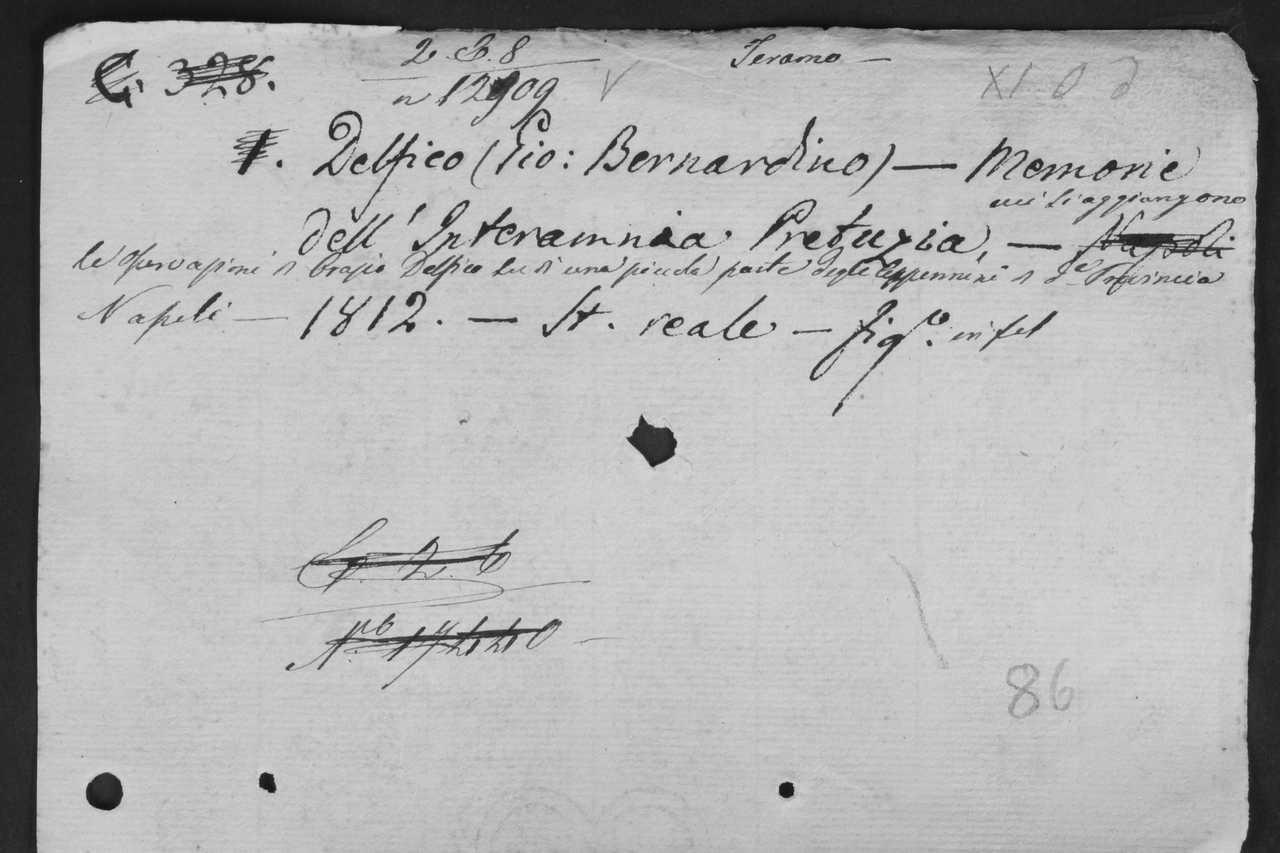 C. 328. 2. B. 8 Teramo —
n 12909 V XI O
1. Delfico (Gio: Bernardino) — Memorie
cui si aggiungono
dell' Interamnia Pretuzia, — Napoli
le Osservazioni di Orazio Delfico su di una piccola parte degli Appennini di d.a Provincia
Napoli — 1812. — St. reale — fig.to in fol
N.ro 17440 —
86